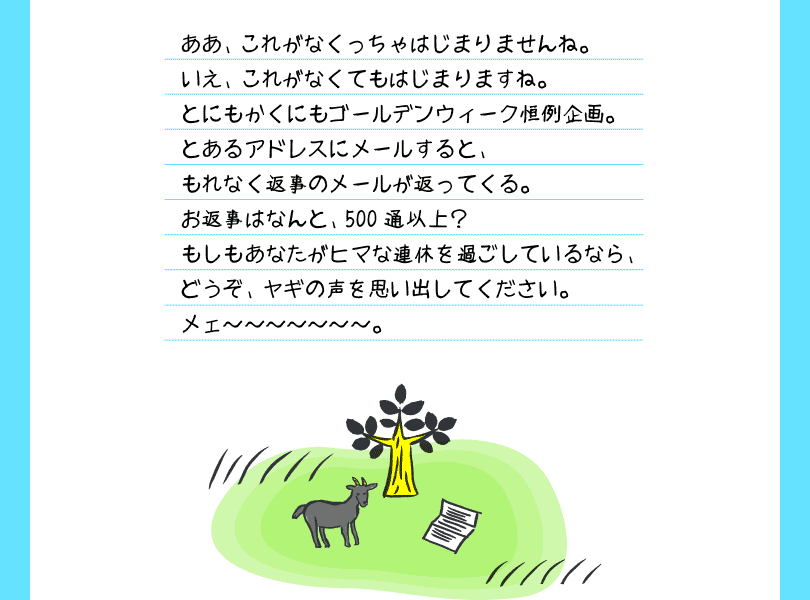 ああ、これがなくっちゃはじまりませんね。
いえ、これがなくてもはじまりますね。
とにもかくにもゴールデンウィーク恒例企画。
とあるアドレスにメールすると、
もれなく返事のメールが返ってくる。
お返事はなんと、500通以上？
もしもあなたがヒマな連休を過ごしているなら、
どうぞ、ヤギの声を思い出してください。
メェ〜〜〜〜〜〜〜。